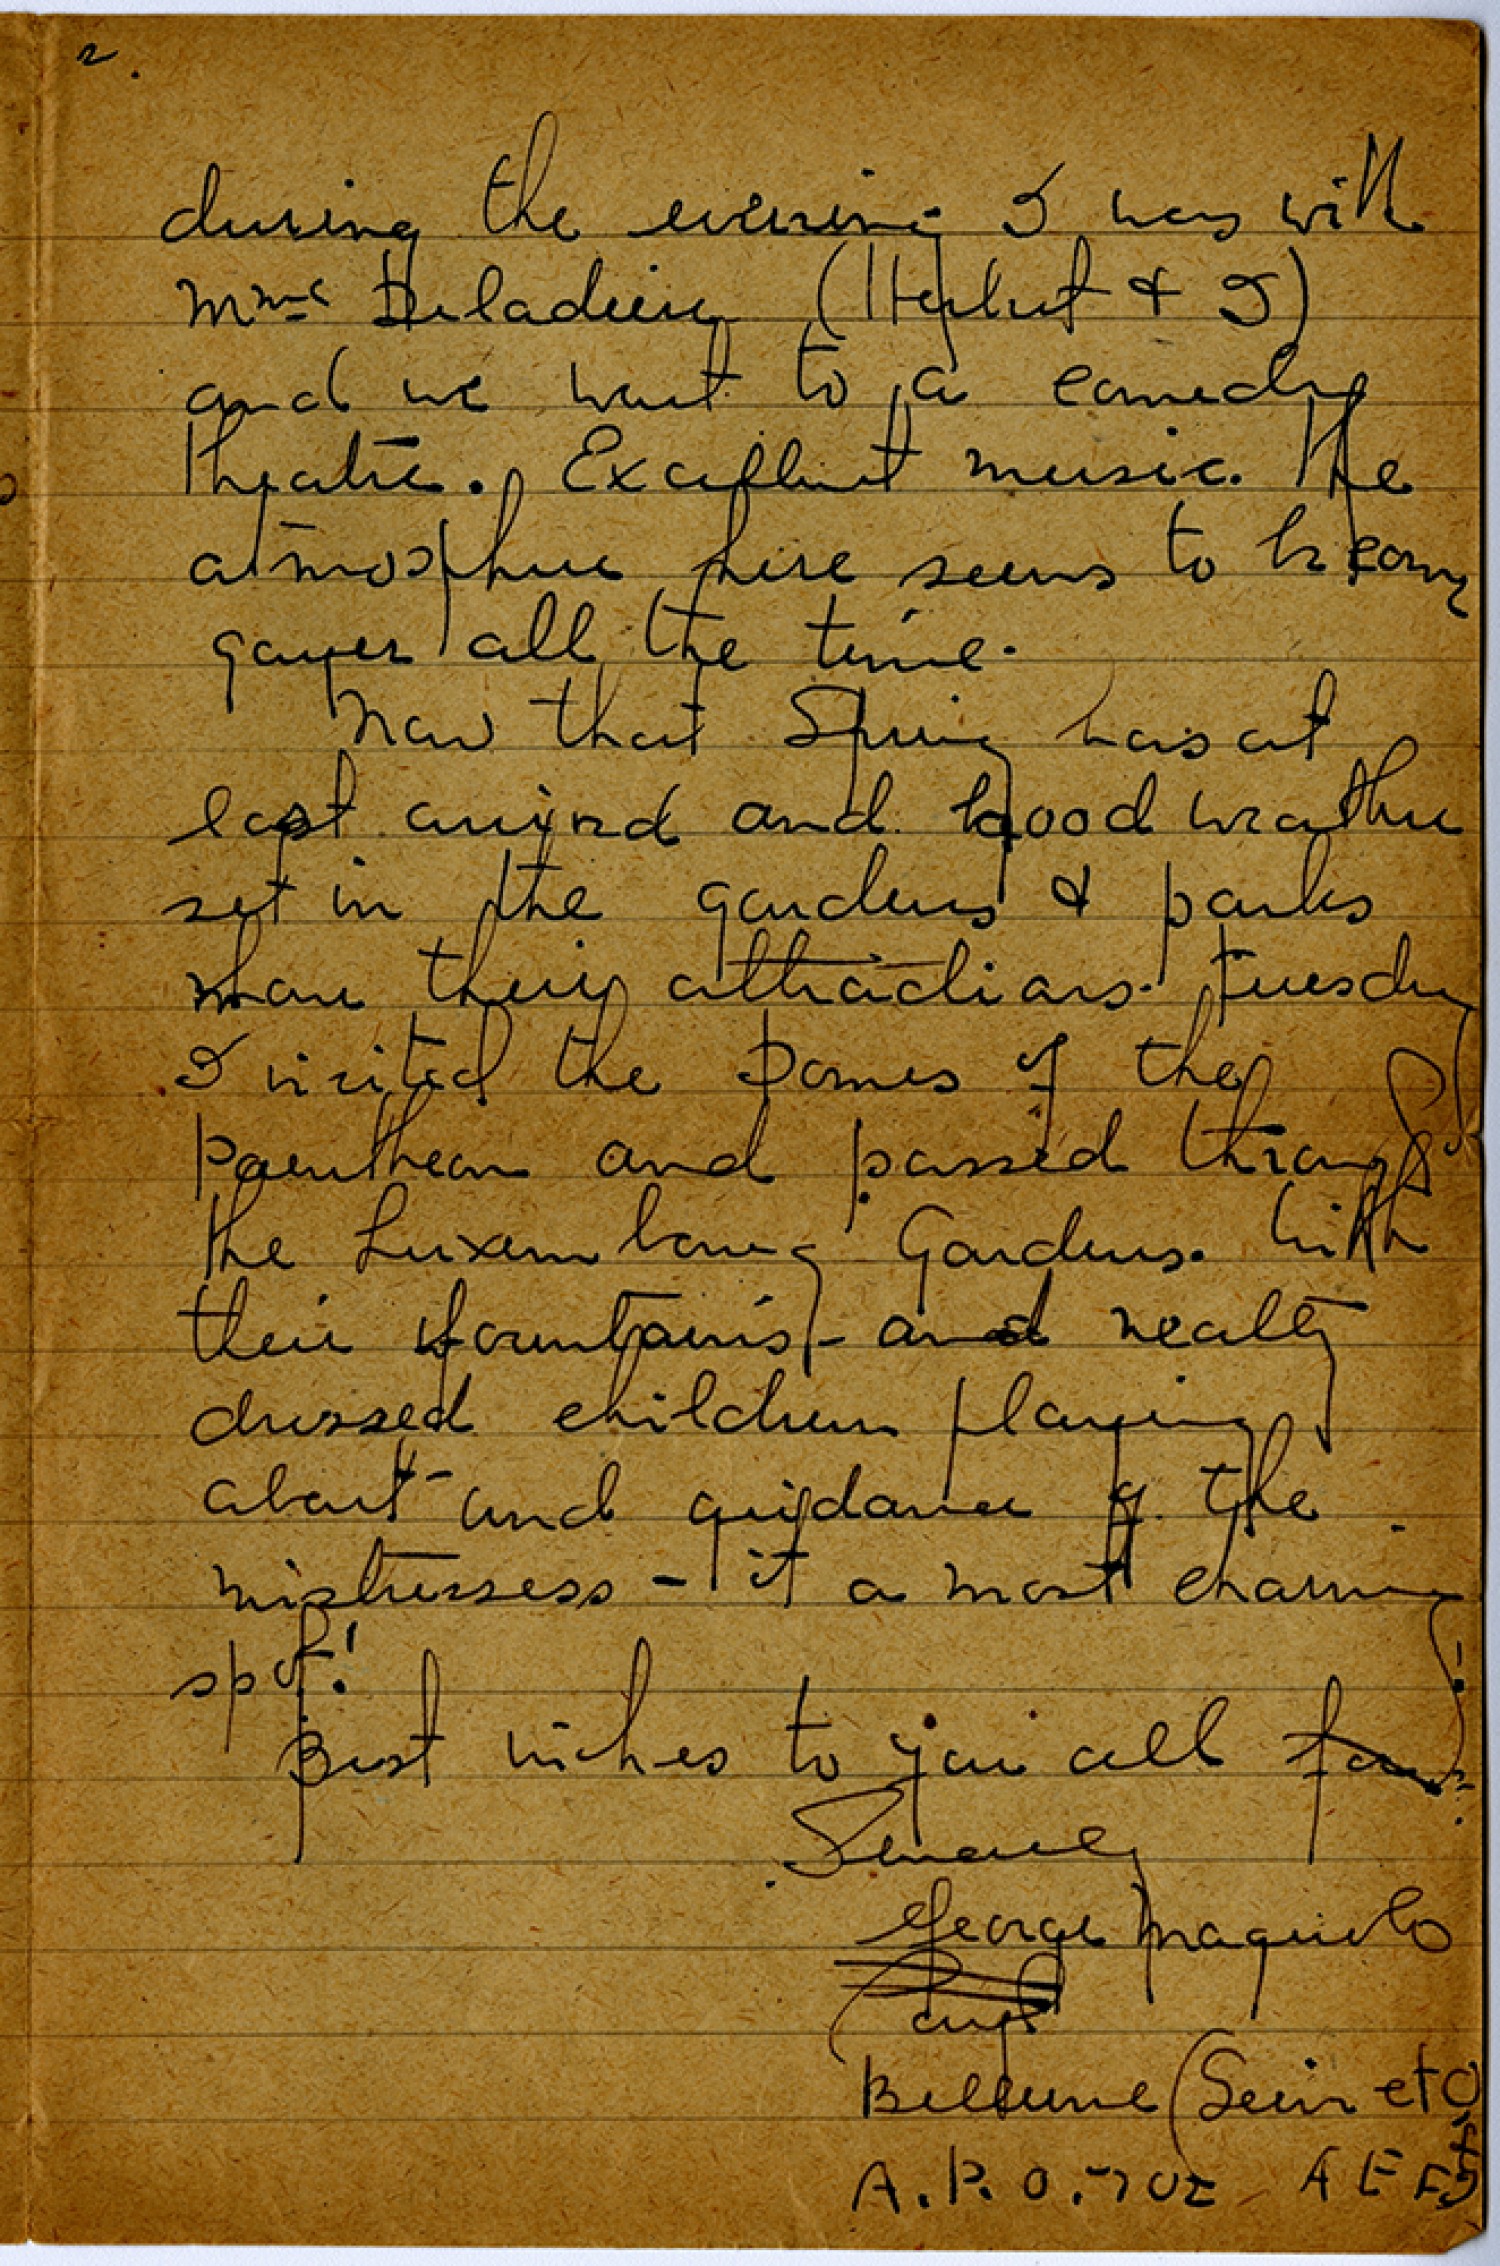 2.
during the evening I was with
Mme (Herbert & I)
and we went to a comedy
theatre. Excellent music. The
atmosphere here seems to be
gayer all the time.
Now that Spring has at
last arrived and good weather
set in the gardens & parks
their attractions. Tuesday
I visited the Domes of the
Pantheon and passed through
the Luxembourg Gardens. With
their fountains - and neatly
dressed children playing
about and guidance of the
mistressess - it a most charming
spot!
Best wishes to you all
Sincerely
George Maguolo
Bellevue (Seine et O
A.P.O. 702 A E F